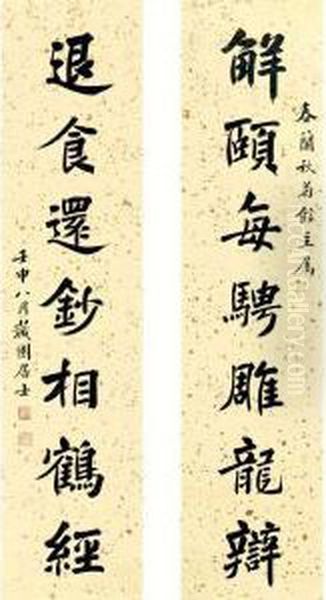 春蘭秋菊館主屬
解頤每騁雕龍辯
退食還鈔相鶴經
壬申八月 園居士